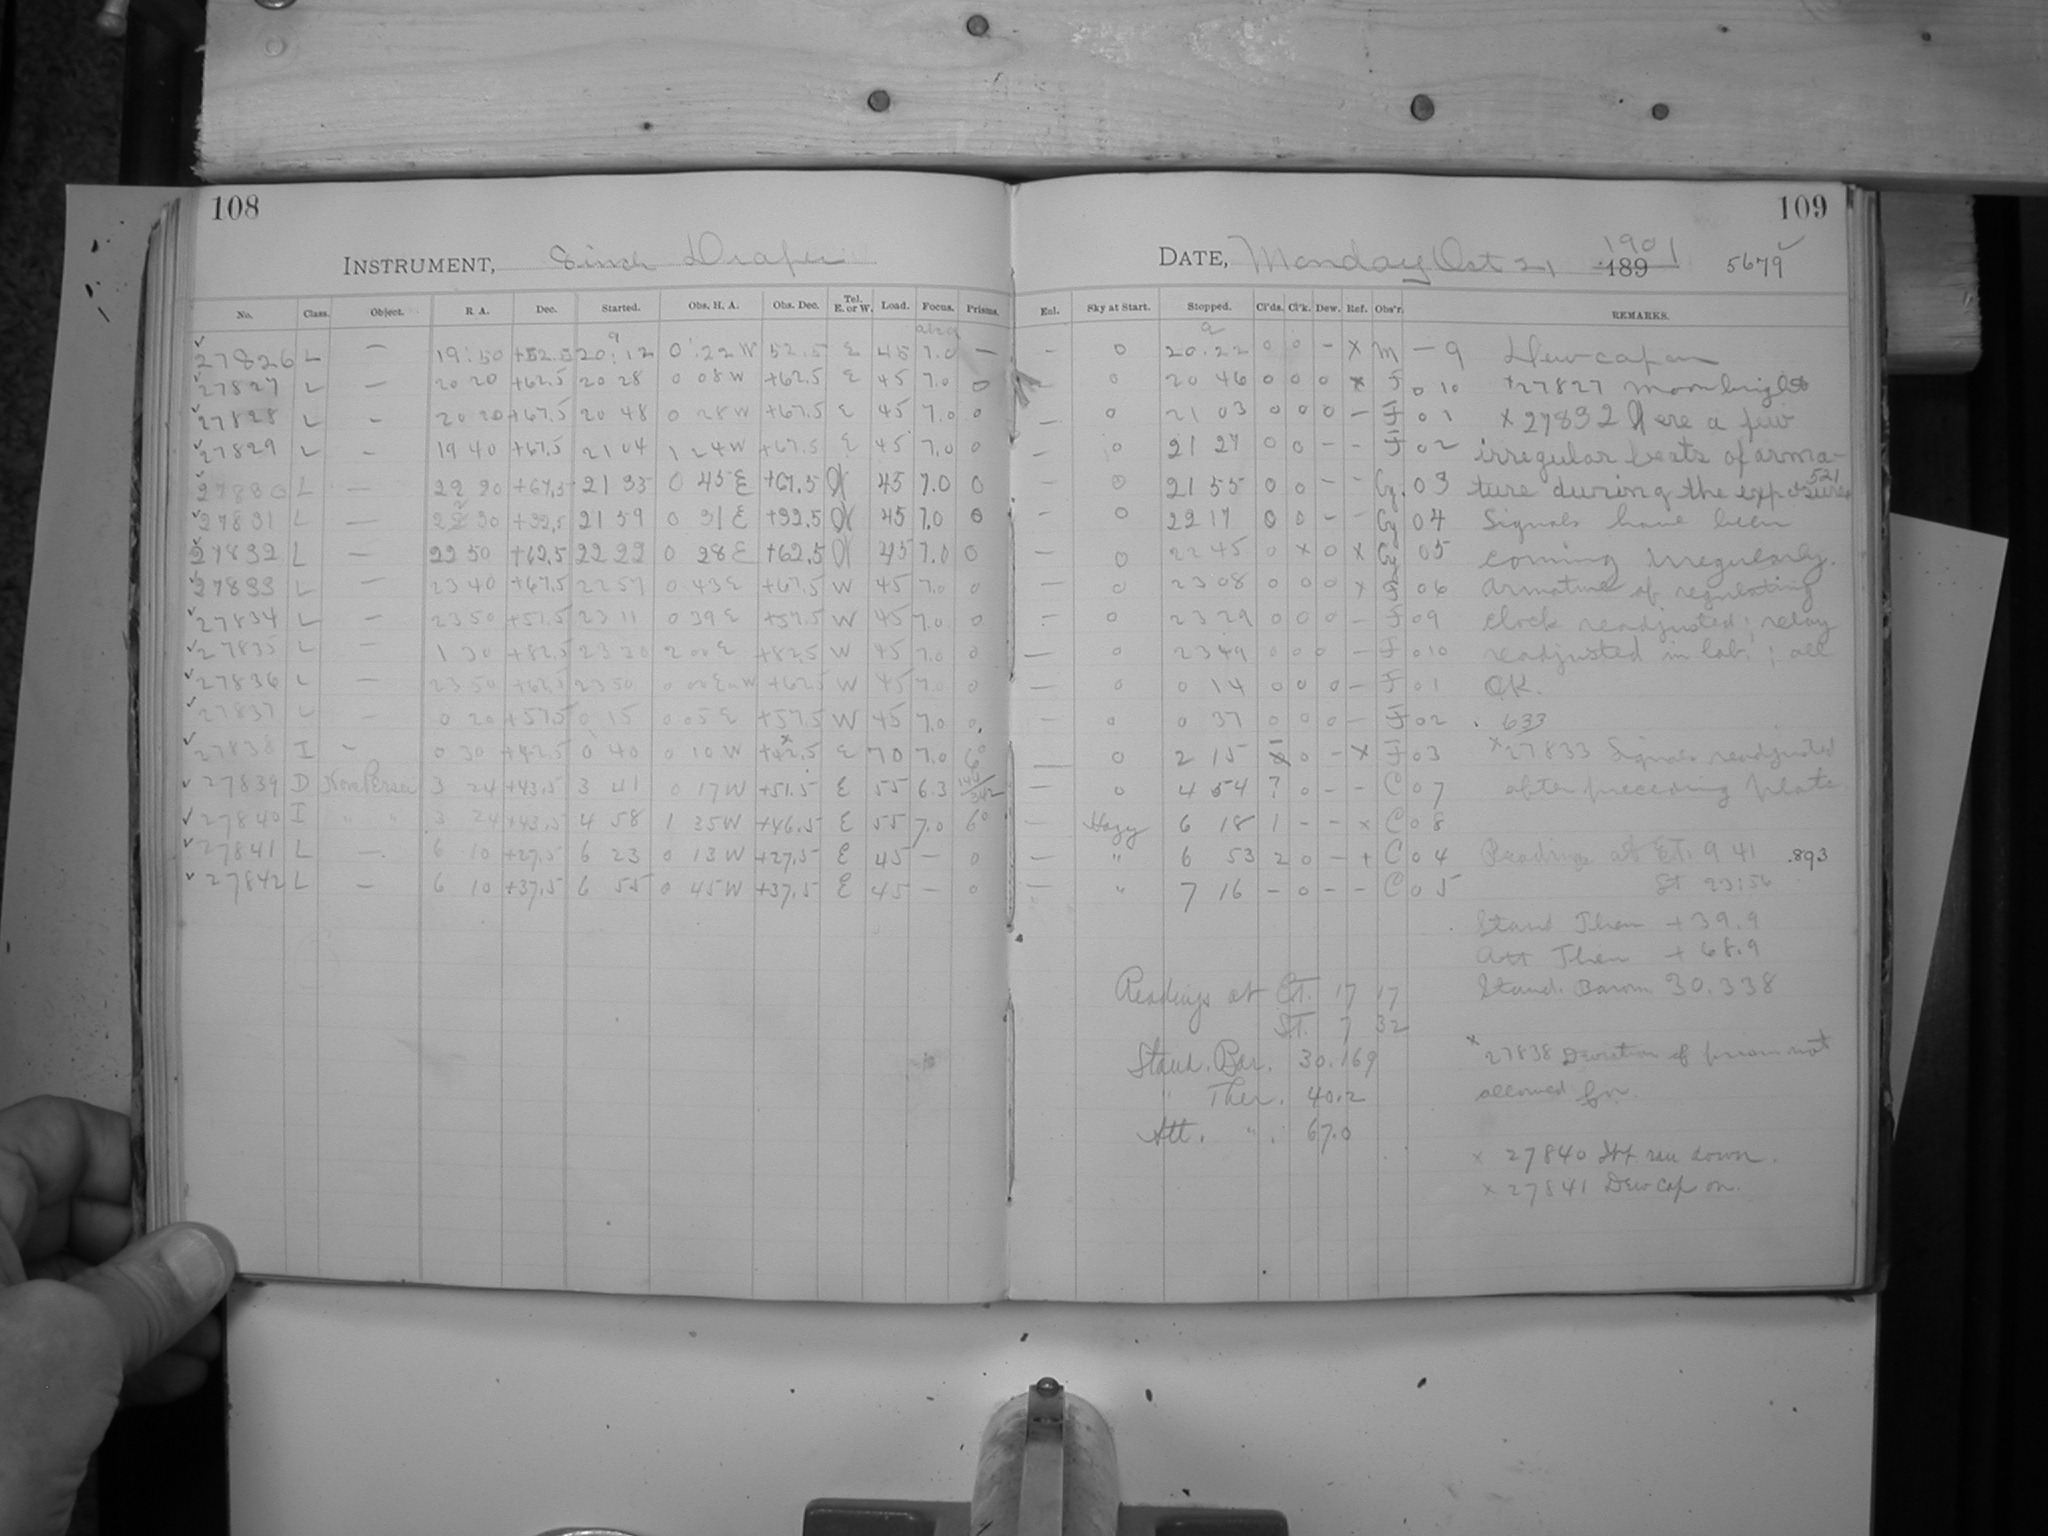 108
INSTRUMENT, 8 inch Draper
No. Class. Object. R. A. Dec. Started. Obs. H. A. Obs. Dec. Tel. E. or W. Load. Focus. Prisms.
27826 L — 19:50 +52.5 20:12 0:22 W 52.5 E 45 7.0 —
27827 L — 20 20 +62.5 20 28 0 08 W +62.5 E 45 7.0 0
27828 L — 20 20 +67.5 20 48 0 28 W +67.5 E 45 7.0 0
27829 L — 19 40 +67.5 21 04 1 24 W +67.5 E 45 7.0 0
27830 L — 22 20 +67.5 21 35 0 45 E +67.5 45 7.0 0
27831 L — 22 30 +32.5 21 59 0 31 E +32.5 45 7.0 0
27832 L 22 50 +62.5 22 22 0 28 E +62.5 45 7.0 0
27833 L — 23 40 +67.5 22 57 0 43 E +67.5 W 45 7.0 0
27834 L — 23 50 +57.5 23 11 0 39 E +57.5 W 45 7.0 0
27835 L — 1 30 +82.5 23 30 2 00 E +82.5 W 45 7.0 0
27836 L — 23 50 +62.5 23 50 0 00 E or W +62.5 W 45 7.0 0
27837 L — 0 20 +57.5 0 15 0 05 E +57.5 W 45 7.0 0
27838 I — 0 30 +42.5 0 40 0 10 W +42.5 E 70 7.0 6°
27839 D Nova Persei 3 24 +43.5 3 41 0 17 W +51.5 E 55 6.3
27840 I " " 3 24 +43.5 4 58 1 35 W +46.5 E 55 7.0 6°
27841 L — 6 10 +27.5 6 23 0 13 W +27.5 E 45 — 0
27842 L — 6 10 +37.5 6 55 0 45 W +37.5 E 45 — 0
109
DATE, Monday Oct 21 1901 189 5679
Enl. Sky at Start. Stopped. Cl'ds. Cl'k. Dew. Ref. Obs'r. REMARKS.
— 0 20:22 0 0 — x M — 9 Dew cap on
— 0 20 46 0 0 0 x F 0 10 x27827 Moon bright
— 0 21 03 0 0 0 — F 0 1 x 27832 Here a few
— 0 21 27 0 0 — — F 0 2 irregular beats of arma-
— 0 21 55 0 0 — — Cy. 0 3 ture during the exposure 521
— 0 22 17 0 0 — — Cy 0 4 Signals have been
— 0 22 45 0 x 0 x Cy 0 5 coming irregularly.
— 0 23 08 0 0 0 x F 0 6 Armature of regulating
— 0 23 29 0 0 0 — F 0 9 clock readjusted; relay
— 0 23 49 0 0 0 — F 0 10 readjusted in lab.; all
— 0 0 14 0 0 0 — F 0 1 OK.
— 0 0 37 0 0 0 — F 0 2 . 633
— 0 2 15 0 — x F 0 3 x27833 Signals readjusted
— 0 4 54 ? 0 — — C 0 7 after preceding plate
— Hazy 6 18 1 — — x C 0 8
— " 6 53 2 0 — + C 0 4 Readings at E.T. 9 41 .893
— " 7 16 — 0 — — C 0 5 St 23:56
Stand Ther +39.9
Att Ther +68.9
Stand. Barom 30.338
Readings at E.T. 17 17
S.T. 7 32
Stand. Bar. 30.169
" Ther. 40.2
Att. " . 67.0
x 27838 Deviation of prism not
allowed for.
x 27840 run down.
x 27841 Dew cap on.